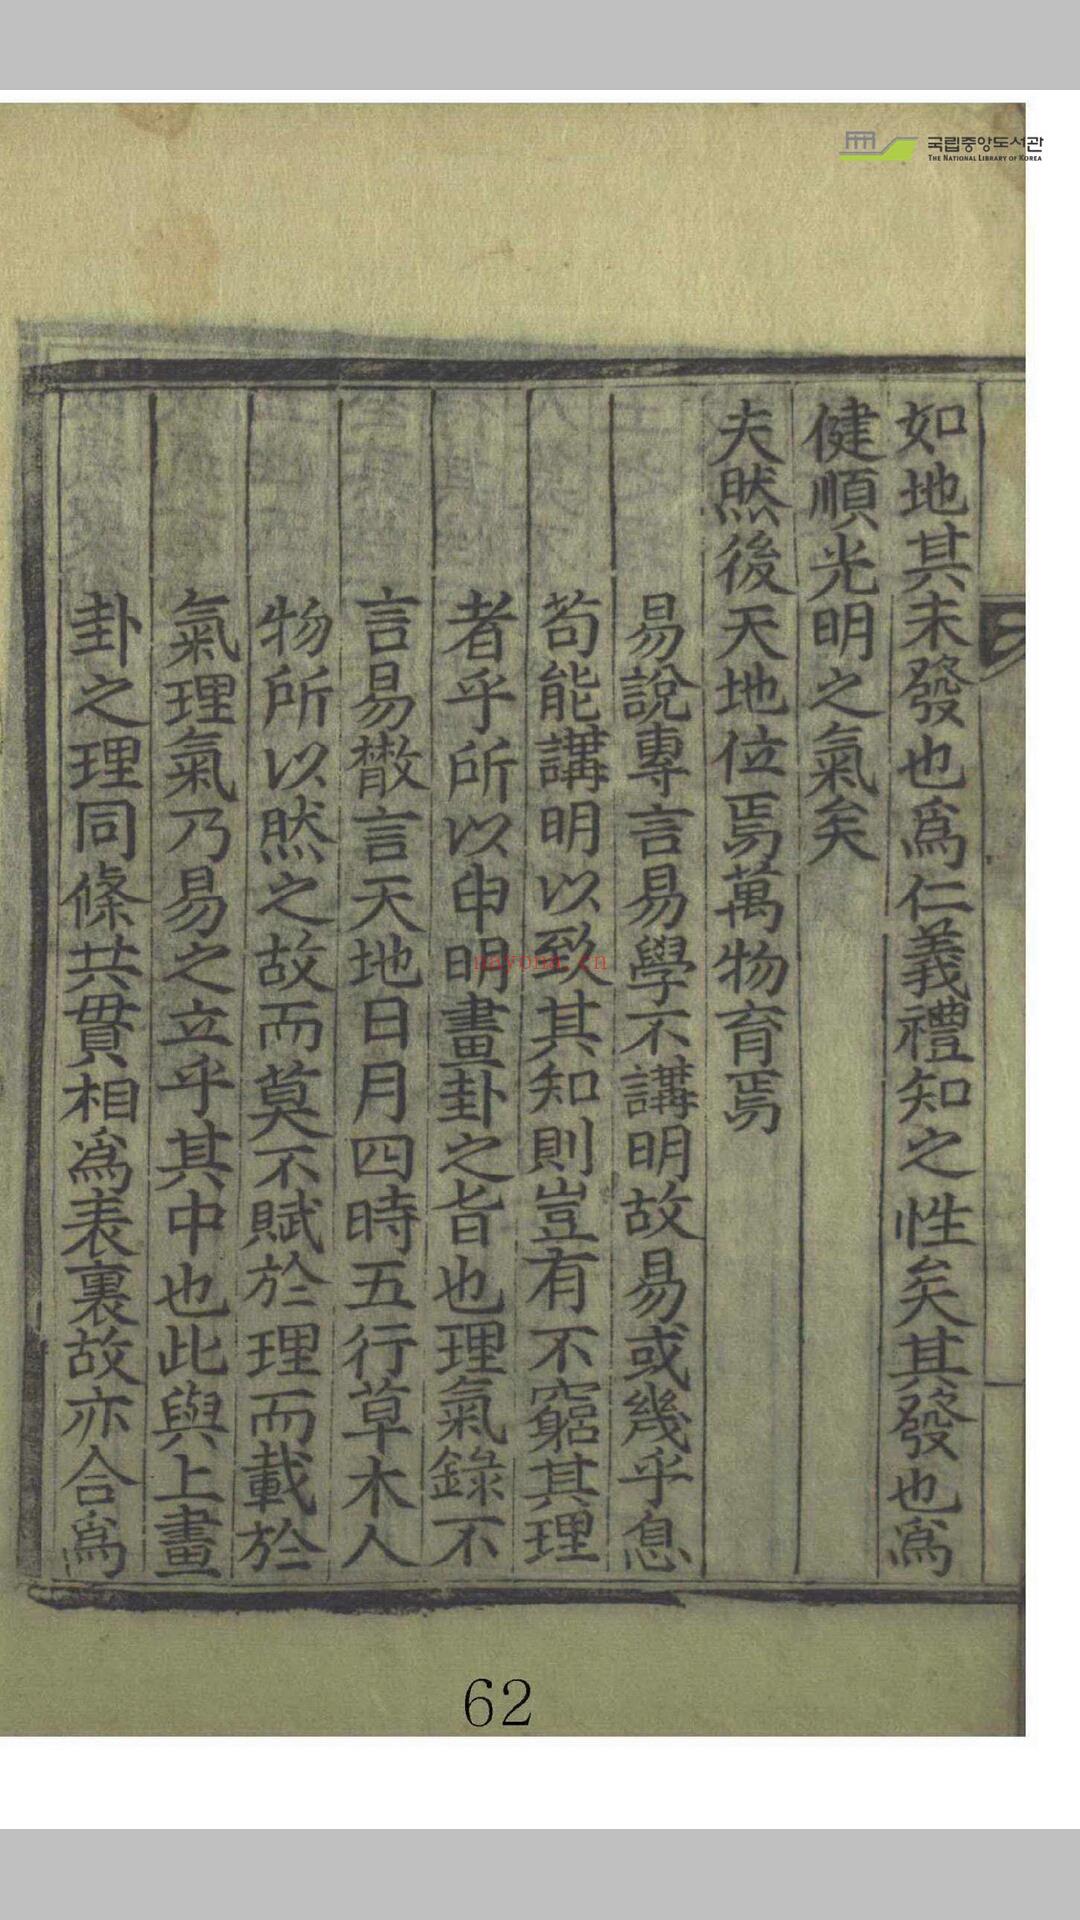 국립중앙도서관
THE NATIONAL LIBRARY OF KOREA
如地其未發也爲仁義禮知之性矣其發也爲
健順光明之氣矣
夫然後天地位焉萬物育焉
易說專言易學不講明故易或幾乎息
苟能講明以致其知則豈有不窮其理
者乎所以申明畫卦之旨也理氣錄不
言易散言天地日月四時五行草木人
物所以然之故而莫不賦於理而載於
氣理氣乃易之立乎其中也此與上畫
卦之理同條共貫相爲表裏故亦合爲
nayona.cn
62